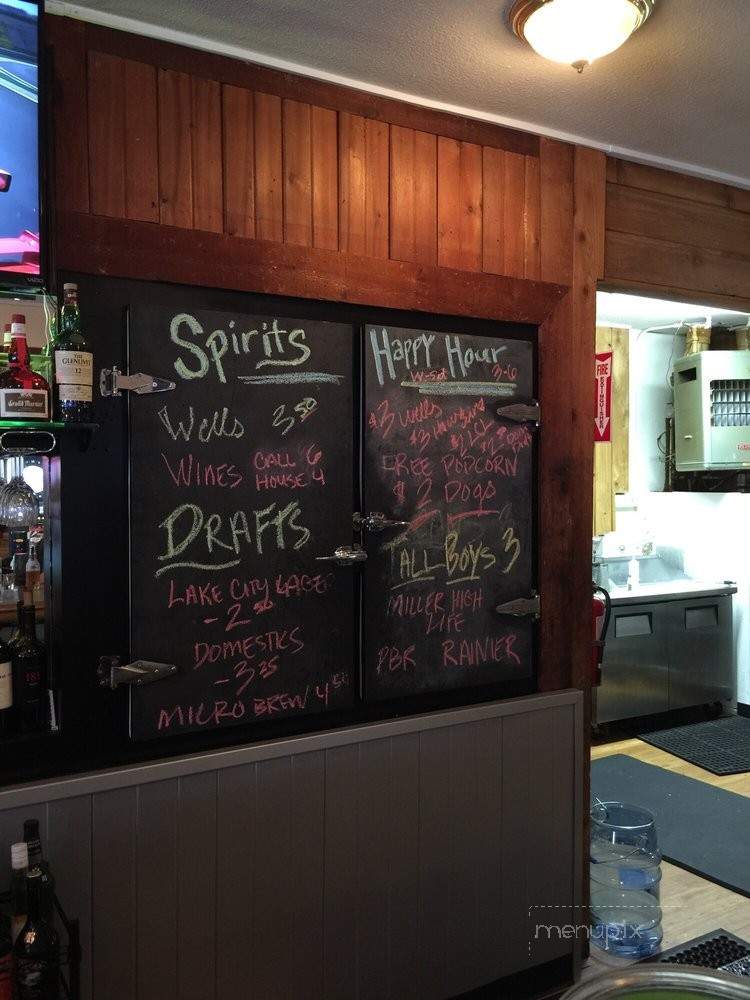 Spirits
Wells 3.50
WINES CALL 6
HOUSE 4
DRAFTS
LAKE CITY LAGER
- 2.50
DOMESTICS
- 3.25
MICRO BREW 4
HAPPY HOUR
W-Sat 3-6
$3 Wells
$3
FREE POPCORN
$2 Dogs
TALL BOYS 3
MILLER HIGH
LIFE
PBR RAINIER
THE
GLENLIVET
12
FIRE
EXTINGUISHER
menupix